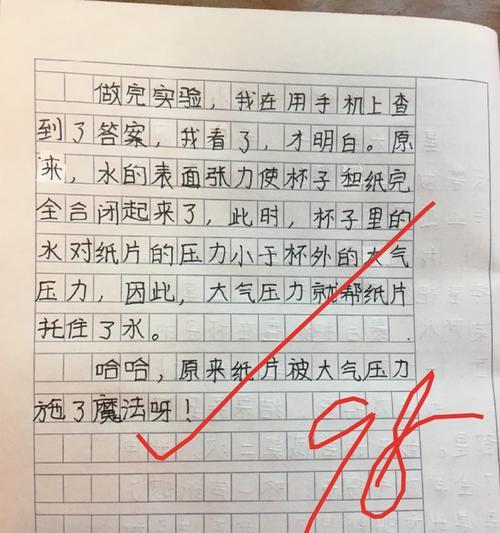 做完实验，我在用手机上查
到了答案，我看了，才明白。原
来，水的表面张力使杯子和纸完
全合闭起来了，此时，杯子里的
水对纸片的压力小于杯外的大气
压力，因此，大气压力就帮纸片
托住了水。
哈哈，原来纸片被大气压力
施了魔法呀！
98